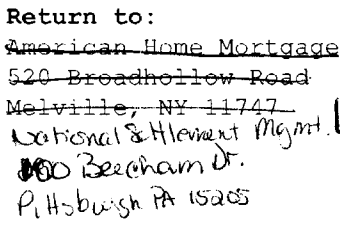 Return to:
American Home Mortgage
520 Broadhollow Road
Melville, NY 11747
National Settlement Mgmt.
100 Beecham Dr.
Pittsburgh PA 15205